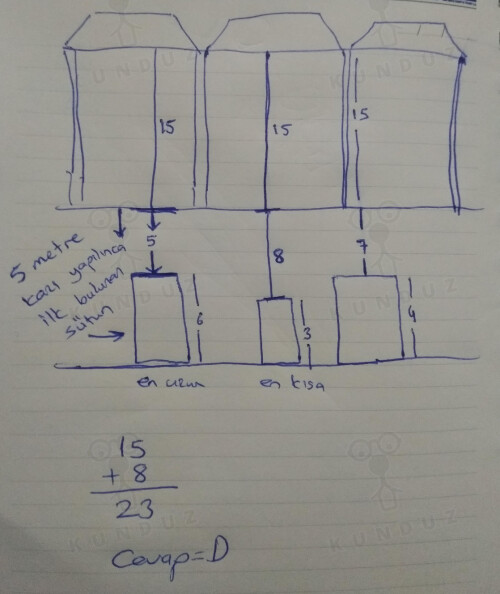 15
15
15
5 metre
kazı yapılınca
ilk bulunan
sütun
5
8
7
6
3
4
en uzun
en kısa
15
+ 8
23
Cevap=D
KUNDUZ
KUNDUZ
KUNDUZ
KUNDUZ
KUNDUZ
KUNDUZ